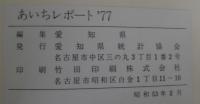 あいちレポート'77
編集 愛知県
発行 愛知県統計協会
名古屋市中区三の丸3丁目1番2号
印刷 竹田印刷株式会社
名古屋市昭和区白金1丁目11-10
昭和53年2月